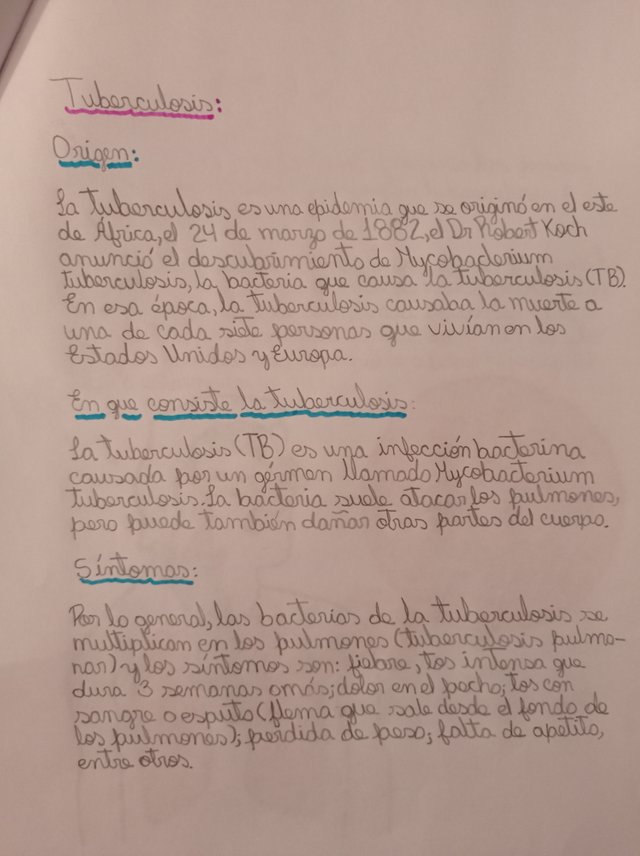 Tuberculosis:
Origen:
La tuberculosis, es una epidemia que se originó en el este
de África, el 24 de marzo de 1882, el Dr Robert Koch
anunció el descubrimiento de Mycobacterium
tuberculosis, la bacteria que causa la tuberculosis (TB).
En esa época, la tuberculosis causaba la muerte a
una de cada siete personas que vivían en los
Estados Unidos y Europa.
En que consiste la tuberculosis:
La tuberculosis (TB) es una infección bacterina
causada por un gérmen llamado Mycobacterium
tuberculosis. La bacteria suele atacar los pulmones,
pero puede también dañar otras partes del cuerpo.
Síntomas:
Por lo general, las bacterias de la tuberculosis se
multiplican en los pulmones (tuberculosis pulmo-
nar) y los síntomos son: fiebre, tos intensa que
dura 3 semanas o más; dolor en el pecho; tos con
sangre o esputo (flema que sale desde el fondo de
los pulmones); perdida de peso; falta de apetito,
entre otros.